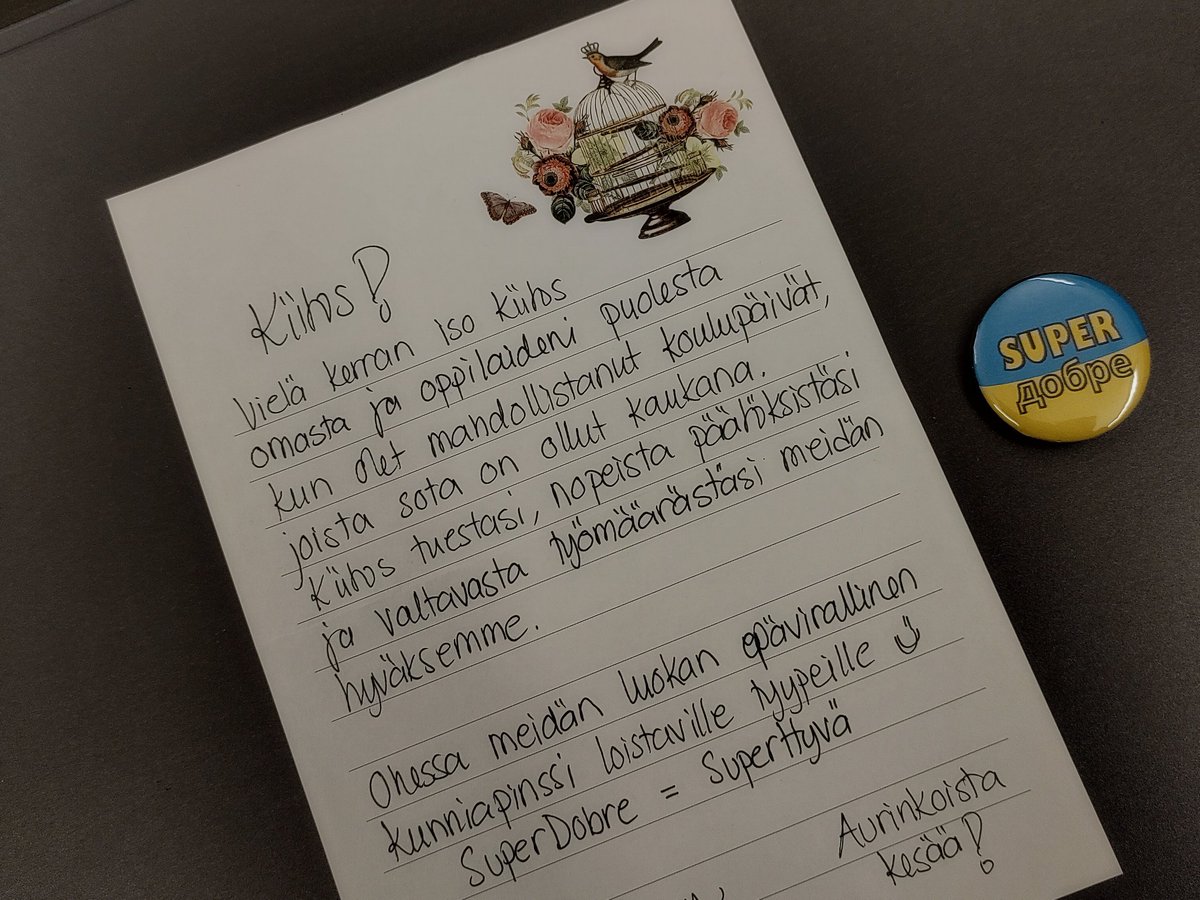 Kiitos!
Vielä kerran iso kiitos
omasta ja oppilaideni puolesta
kun olet mahdollistanut koulupäivät,
joista sota on ollut kaukana.
Kiitos tuestasi, nopeista päätöksistäsi
ja valtavasta työmäärästäsi meidän
hyväksemme.
Ohessa meidän luokan epävirallinen
kunniapinssi loistaville tyypeille
SuperDobre = SuperHyvä
Aurinkoista
kesää!
SUPER
добре